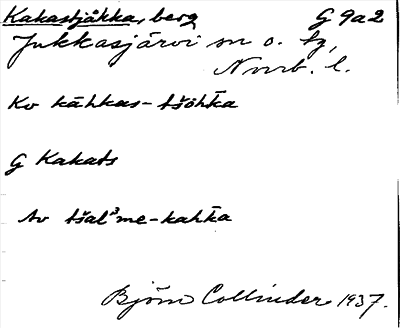 Kakastjåkka, berg G 9a2
Jukkasjärvi sn o. tg,
Norrb. l.
Kv kāhkas-tšohka
G Kakats
Av tšalˀme-kahka
Björn Collinder 1937.